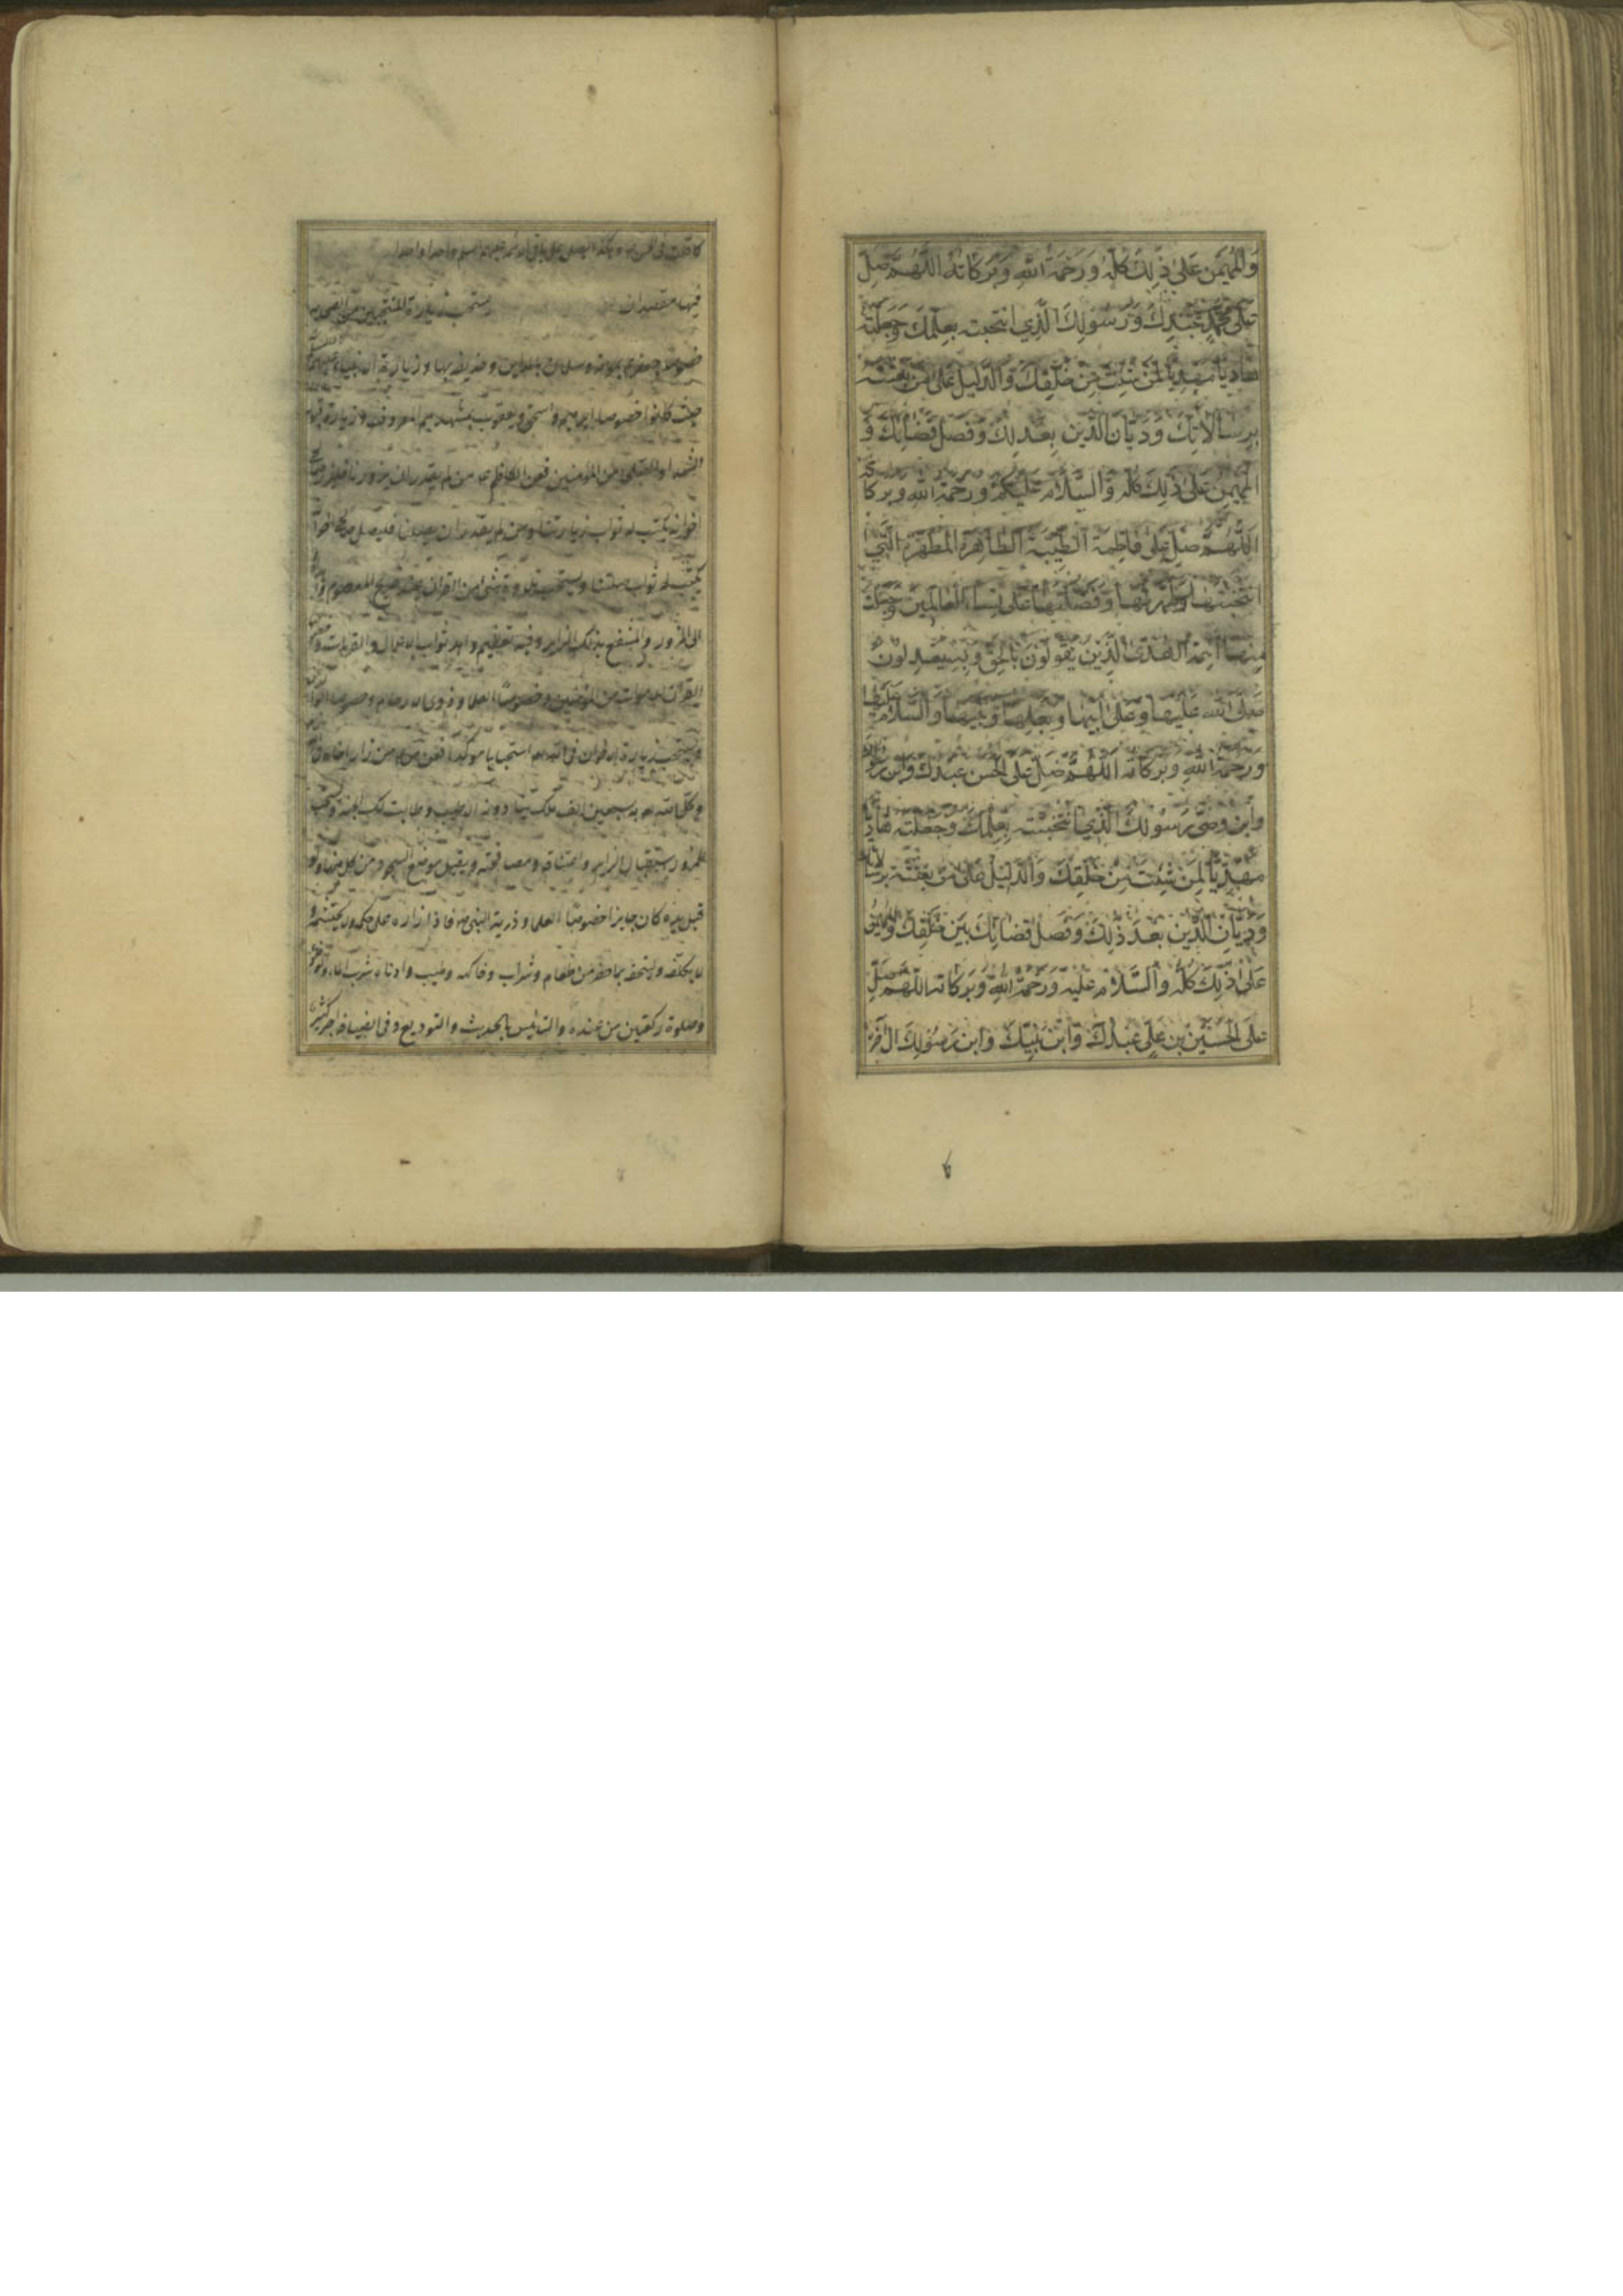 وَالْمُهَيْمِنِ عَلى ذٰلِكَ كُلِّهِ وَرَحْمَةُ اللّٰهِ وَبَرَكَاتُهُ اللّٰهُمَّ صَلِّ
عَلى مُحَمَّدٍ عَبْدِكَ وَرَسُولِكَ الَّذِي انْتَجَبْتَهُ بِعِلْمِكَ وَجَعَلْتَهُ
هَادِيًا مَهْدِيًّا لِمَنْ شِئْتَ مِنْ خَلْقِكَ وَالدَّلِيلَ عَلى مَنْ بَعَثْتَهُ
بِرِسَالَاتِكَ وَدَيَّانَ الدِّينِ بِعَدْلِكَ وَفَصْلِ قَضَائِكَ وَ
الْمُهَيْمِنِ عَلى ذٰلِكَ كُلِّهِ وَالسَّلَامُ عَلَيْكُمْ وَرَحْمَةُ اللّٰهِ وَبَرَكَاتُهُ
اللّٰهُمَّ صَلِّ عَلى فَاطِمَةَ الطَّيِّبَةِ الطَّاهِرَةِ الْمُطَهَّرَةِ الَّتِي
انْتَجَبْتَهَا وَطَهَّرْتَهَا وَفَضَّلْتَهَا عَلى نِسَاءِ الْعَالَمِينَ وَجَعَلْتَ
مِنْهَا أَئِمَّةَ الْهُدَى الَّذِينَ يَقُولُونَ بِالْحَقِّ وَبِهِ يَعْدِلُونَ
صَلَّى اللّٰهُ عَلَيْهَا وَعَلى أَبِيهَا وَبَعْلِهَا وَبَنِيهَا وَالسَّلَامُ عَلَيْهَا
وَرَحْمَةُ اللّٰهِ وَبَرَكَاتُهُ اللّٰهُمَّ صَلِّ عَلَى الْحَسَنِ عَبْدِكَ وَابْنِ رَسُولِكَ
وَابْنِ وَصِيِّ رَسُولِكَ الَّذِي انْتَجَبْتَهُ بِعِلْمِكَ وَجَعَلْتَهُ هَادِيًا
مَهْدِيًّا لِمَنْ شِئْتَ مِنْ خَلْقِكَ وَالدَّلِيلَ عَلى مَنْ بَعَثْتَهُ بِرِسَالَاتِكَ
وَدَيَّانَ الدِّينِ بَعْدَ ذٰلِكَ وَفَصْلِ قَضَائِكَ بَيْنَ خَلْقِكَ وَالْمُهَيْمِنِ
عَلى ذٰلِكَ كُلِّهِ وَالسَّلَامُ عَلَيْهِ وَرَحْمَةُ اللّٰهِ وَبَرَكَاتُهُ اللّٰهُمَّ صَلِّ
عَلَى الْحُسَيْنِ بْنِ عَلِيٍّ عَبْدِكَ وَابْنِ نَبِيِّكَ وَابْنِ رَسُولِكَ
واحدا واحدا
فيها مقصدان يستحب زيارة المنتجبين من الصحابة
خصوصا جعفر بموته وسلمان بالمداين وحذيفة بها وزيارة الانبياء
حيث كانوا خصوصا ابرهيم واسحق ويعقوب بمشهدهم المعروف وزيارة قبور
الشهداء والصلحاء من المؤمنين فعن الكاظم ع من لم يقدر ان يزورنا فليزر صالحى
اخوانه يكتب له ثواب زيارتنا ومن لم يقدر ان يصلنا فليصل صالحى اخوانه
يكتب له ثواب صلتنا ويستحب تلاوة شئ من القران عند ضريح المعصوم
الى المزور والمنتفع بذلك الزاير وفيه تعظيم واهداء ثواب الاعمال والقربات
القران للاموات من المؤمنين وخصوصا العلماء وذوى الارحام
ويستحب زيارة الاخوان فى الله استحبابا مؤكدا فعن من زار اخاه
وكل الله به سبعين الف ملك ينادونه الا طبت وطابت لك الجنة ويستحب
للمزور استقبال الزاير واعتناقه ومصافحته ويقبل موضع السجود من كل منهما ولو
قبل يده كان جايزا خصوصا العلماء وذرية النبى ص فاذا زاره على حكمه ولا يحتشمه
لا يكلفه وليتحفه بما حضر من طعام وشراب وفاكهه وطيب وادناه شرب الماء
وصلوة ركعتين من عنده والتانيس بالحديث والتوديع وفى الضيافة اجر كثير